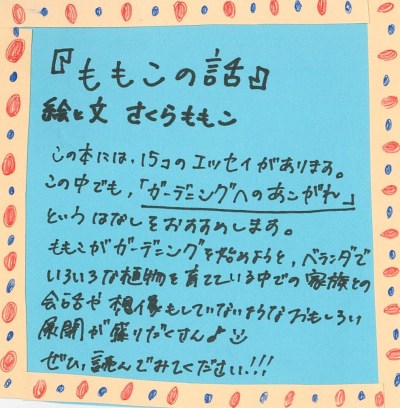 『ももこの話』
絵と文 さくらももこ
この本には、15コのエッセイがあります。
この中でも、「ガーデニングへのあこがれ」
というはなしをおすすめします。
ももこがガーデニングを始めようと、ベランダで
いろいろな植物を育てている中での家族との
会話や想像もしていないようなおもしろい
展開が盛りだくさん♪
ぜひ、読んでみてください!!!